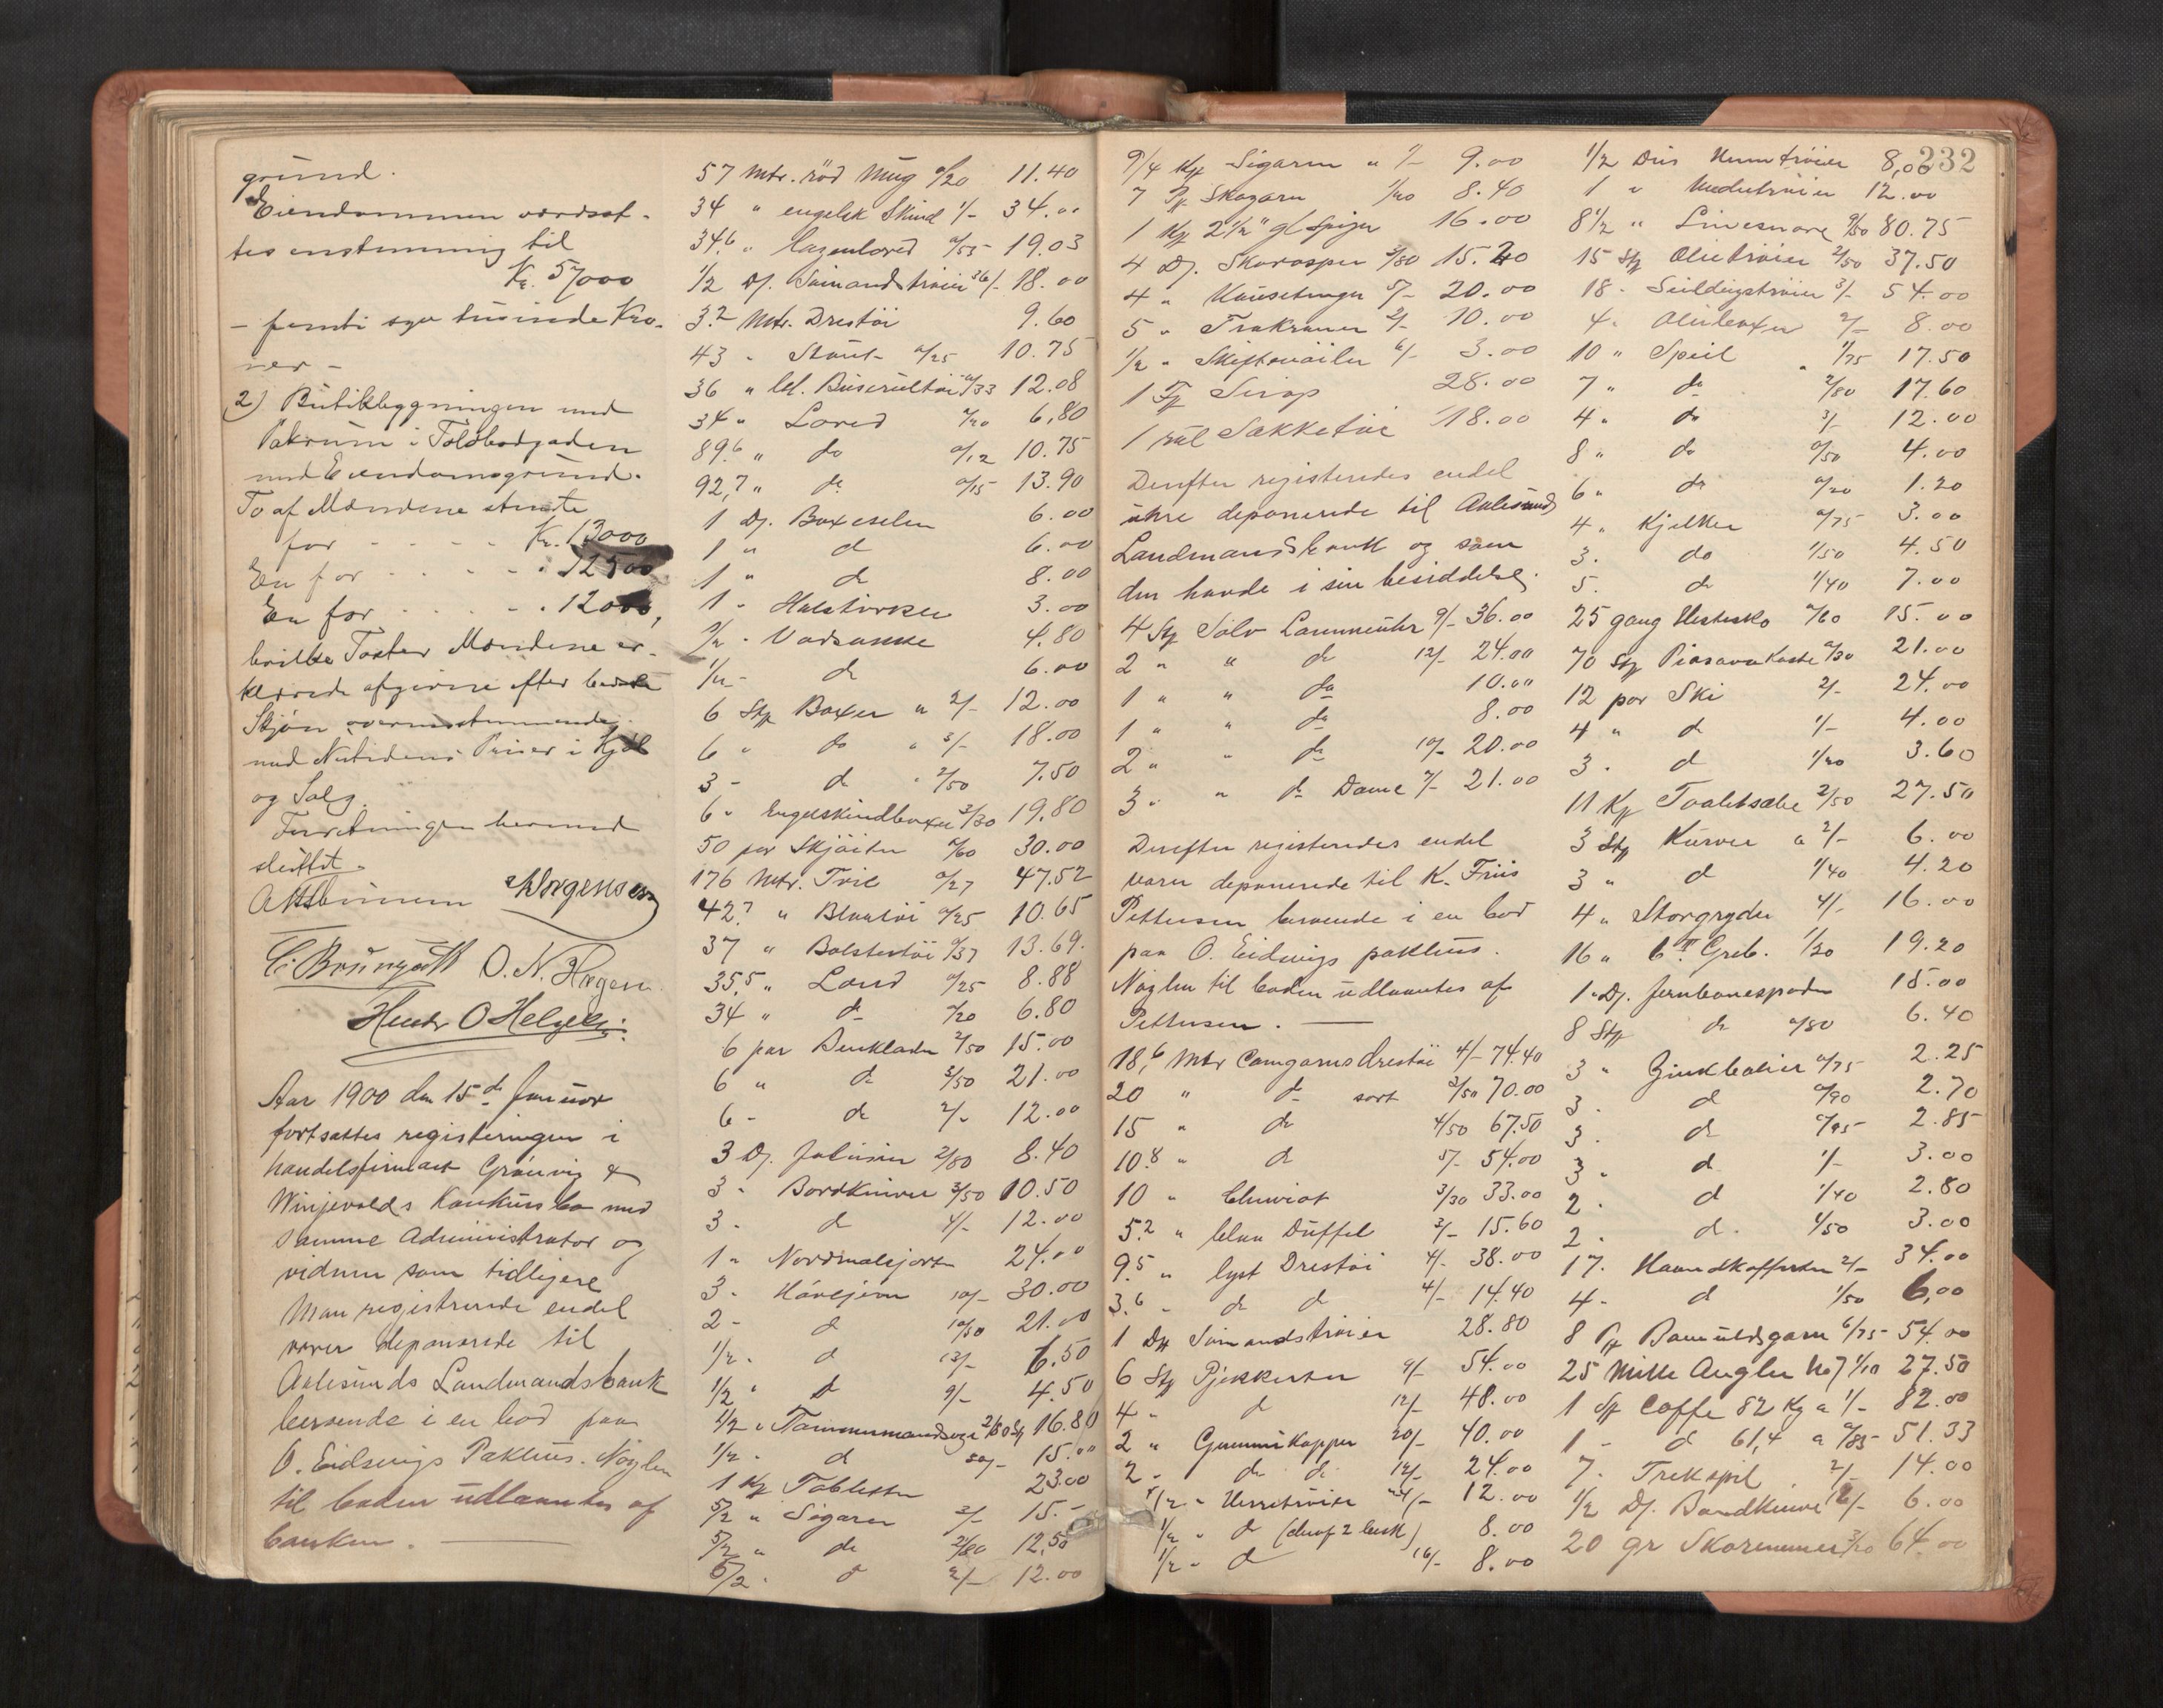 grund.
Eiendommen værdsat-
tes enstemmig til
Kr. 57000
- femti syv tusinde Kro-
ner -
2) Butikbygningen med
Pakrum i Toldbodgaden
med Eiendomsgrund.
To af Mændene stemte
for - - - - Kr. 13000
En for - - - - - 12500
En for - - - - - 12000,
hvilke Taxter Mændene er-
klærede afgivne efter bedste
Skjøn overensstemmende
med Nutidens Priser i Kjøb
og Salg.
Forretningen hermed
sluttet.
O. N. Hagen
Aar 1900 den 15de Januar
fortsattes registeringen i
handelsfirmaet Grönvig &
Winjevolds Konkursbo med
samme Administrator og
vidner som tidligere
Man registrerede endel
varer deponerede til
Aalesunds Landmandsbank
beroende i en bod paa
O. Eidsvigs Pakhus. Nøglen
til boden udlaantes af
banken.
57 Mtr. röd Mug a/20 11.40
34 " engelsk Skind 1/- 34.00
34.6 " a/55 19.03
1/2 Dj. Sömandströier 36/- 18.00
3.2 Mtr. Drestöi 9.60
43 - Stout - a/25 10.75
36 " a/33 12.08
34 " Lored a/20 6,80
89.6 " do a/12 10.75
92,7 " do a/15 13.90
1 Dj. Buxeseler 6.00
1 " d 6.00
1 " d 8.00
1 - Halstörkler 3.00
1/2 - Vadsække 4.80
1/2 - d 6.00
6 Stk Buxer a 2/- 12.00
6 " do " 3/- 18.00
3 - d " 2/50 7.50
6 " Engelskindbuxer 3/30 19.80
50 par Skjöiter a/60 30.00
176 Mtr. Tvil a/27 47.52
42.7 " Blaatöi a/25 10.65
37 " Bolstertöi a/37 13.69.
35,5 " Lored a/25 8.88
34 " d a/20 6.80
6 par Benklæder 2/50 15.00
6 " d 3/50 21.00
6 - d 2/- 12.00
3 Dj. 2/80 8.40
3 - Bordkniver 3/50 10.50
3 - d 4/- 12.00
1 - 24.00
3 - Hövejern 10/- 30.00
2 - d 10/50 21.00
1/2 - d 13/- 6.50
1/2 " d 9/- 4.50
1/2 " Tømmermandsøxe 16.80
1/2 - d 15.00
1 Kg Tabletter 23.00
5/2 " Sigarer 3/- 15.-
5/2 " do 12,50
5/2 " d 12.00
232
9/4 Kg Sigarer " 9.00
7 Pk Skogarn 1/20 8.40
1 Kg 2 1/2" gl Spiger 16.00
4 Dj. 3/80 15.20
4 " 5/- 20.00
5 " Trækraner 2/- 10.00
1/2 " Skiftenöiler 6/- 3.00
1 Fj Sirop 28.00
1 rul Sækketöi 18.00
Derefter registeredes endel
uhre deponerede til Aalesunds
Landmandsbank og som
den havde i sin besiddelse.
4 Stk Sölv Lommeuhr 9/- 36.00
2 " " do 12/- 24.00
1 " " do 10.00
1 " " do 8.00
2 " " do 10/- 20.00
3 " " do Dame 7/- 21.00
Derefter registeredes endel
varer deponerede til K. Friis
Pettersen beroende i en bod
paa O. Eidsvigs pakhus.
Nøglen til boden udlaantes af
Pettersen. -
18,6 Mtr Camgarnsdrestöi 4/- 74.40
20 " d sort 3/50 70.00
15 " do 4/50 67.50
10.8 " d 5/- 54.00
10 " Cheviot 3/30 33.00
5.2 " blaa Düffel 3/- 15.60
9.5 " lyst Drestöi 4/- 38.00
3.6 - do d 4/- 14.40
1 Dj Sömandströier 28.80
6 Stk Pjækkerter 9/- 54.00
4 - d 12/- 48.00
2 " Gummikapper 20/- 40.00
2 - do do 12/- 24.00
1/2 " Herretröier 24/- 12.00
1/2 " d (deraf 2 besk) 8.00
1/2 - d 16/- 8.00
1/2 Dus 8,00
1 " 12.00
8 1/2 " Linesnöre 9/50 80.75
15 Stk Olietröier 2/50 37.50
18 - 3/- 54.00
4 - Oliebuxer 2/- 8.00
10 " Speil 1/75 17.50
7 " do 2/80 17.60
4 " do 3/- 12.00
8 " do a/50 4.00
6 " do a/20 1.20
4 " Kjelker a/75 3.00
3 - do 1/50 4.50
5 - do 1/40 7.00
25 gang Hestesko a/60 15.00
70 Stk Piasavakoste a/30 21.00
12 par Ski 2/- 24.00
4 " d 1/- 4.00
3 - d 1/20 3.60
11 Kg Toaletsæbe 2/50 27.50
3 Stk Kurver a 2/- 6.00
3 " d 1/40 4.20
4 " Storgryder 4/- 16.00
16 " Greb. 1/20 19.20
1 Dj. Jernbanespader 15.00
8 Stk do a/80 6.40
3 " Zinkbalier a/75 2.25
3 - d a/90 2.70
3 - d a/95 2.85
3 " d 1/- 3.00
2 - d 1/40 2.80
2 - d 1/50 3.00
17 - Haandkofferter 2/- 34.00
4 - d 1/50 6,00
8 Pk Bomuldsgarn 6/75 54.00
25 Mille Angler No 7 1/10 27.50
1 Sk Caffe 82 Kg a 1/- 82.00
1 - d 61,4 a a/85 51.33
7 - Trekspil 2/- 14.00
1/2 Dj. Baandkniver 12/- 6.00
20 gr Skoremmer 3/20 64.00